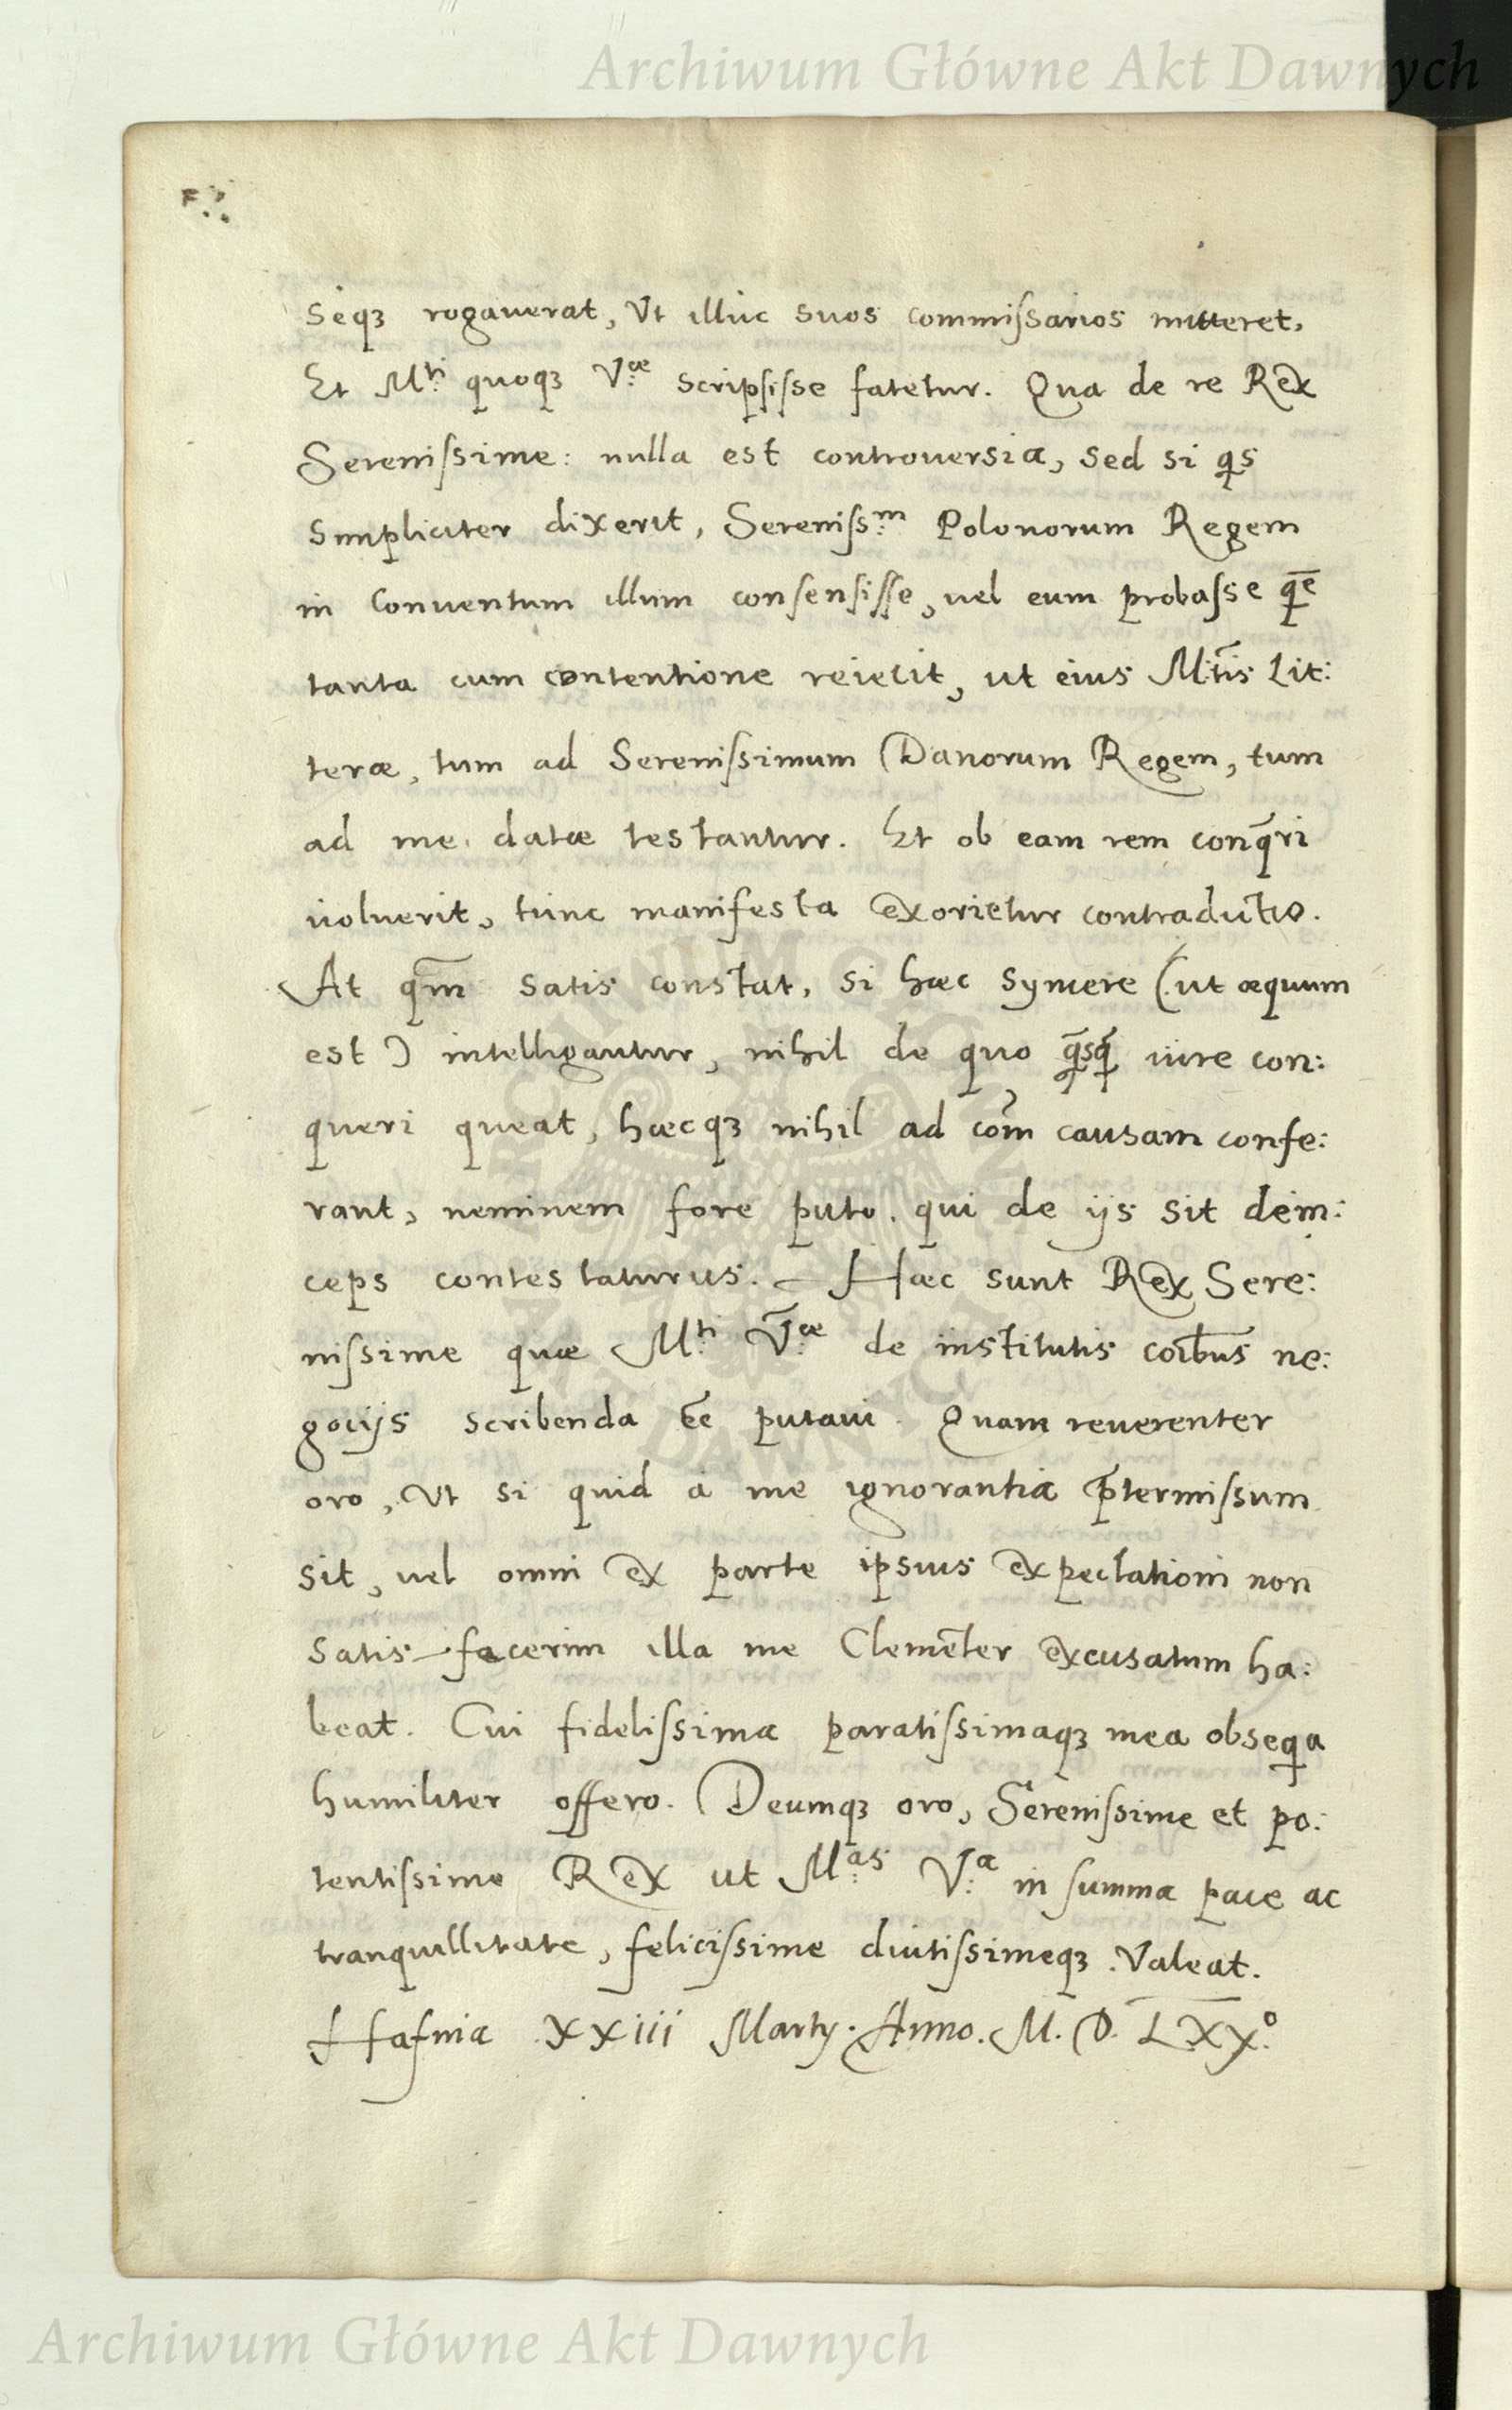 Archiwum Główne Akt Dawnych
seqȝ rogauerat, Vt illuc suos commiſsarios mitteret,
Et M.ti quoqȝ V.æ scripsiſse fatetur. Qua de re Rex
Sereniſsime: nulla est controuersia, sed si qs
simpliciter dixerit, Sereniſs.m Polonorum Regem
in Conuentum illum consensiſse, uel eum probaſse quē
tanta cum contentione reiecit, ut eius Mt̄is Lit:
teræ, tum ad Sereniſsimum Danorum Regem, tum
ad me datæ testantur. Et ob eam rem conq̄ri
uoluerit, tunc manifesta exorietur contradictio.
At qm̄ satis constat, si hæc syncere (ut æquum
est) intelligantur, nihil de quo q̄sq̄ iure con:
queri queat, hæcqȝ nihil ad com̄ causam confe:
rant, neminem fore puto, qui de ijs sit dein:
ceps contestaturus. Hæc sunt Rex Sere:
niſsime quæ M.ti V.æ de institutis coībus ne:
gocijs scribenda eē putaui. Quam reuerenter
oro, Vt si quid a me ignorantia p̄termiſsum
sit, uel omni ex parte ipsius expectationi non
satis-fecerim illa me Clemēter excusatum ha:
beat. Cui fideliſsima paratiſsimaqȝ mea obseqa
humiliter offero. Deumqȝ oro, Sereniſsime et po:
tentiſsime Rex ut M.as V.a in summa pace ac
tranquillitate, feliciſsime diutiſsimeqȝ Valeat.
Hafnia XXiiii Martij. Anno. M. D. LXX.o
ARCHIWUM GŁÓWNE AKT DAWNYCH
Archiwum Główne Akt Dawnych